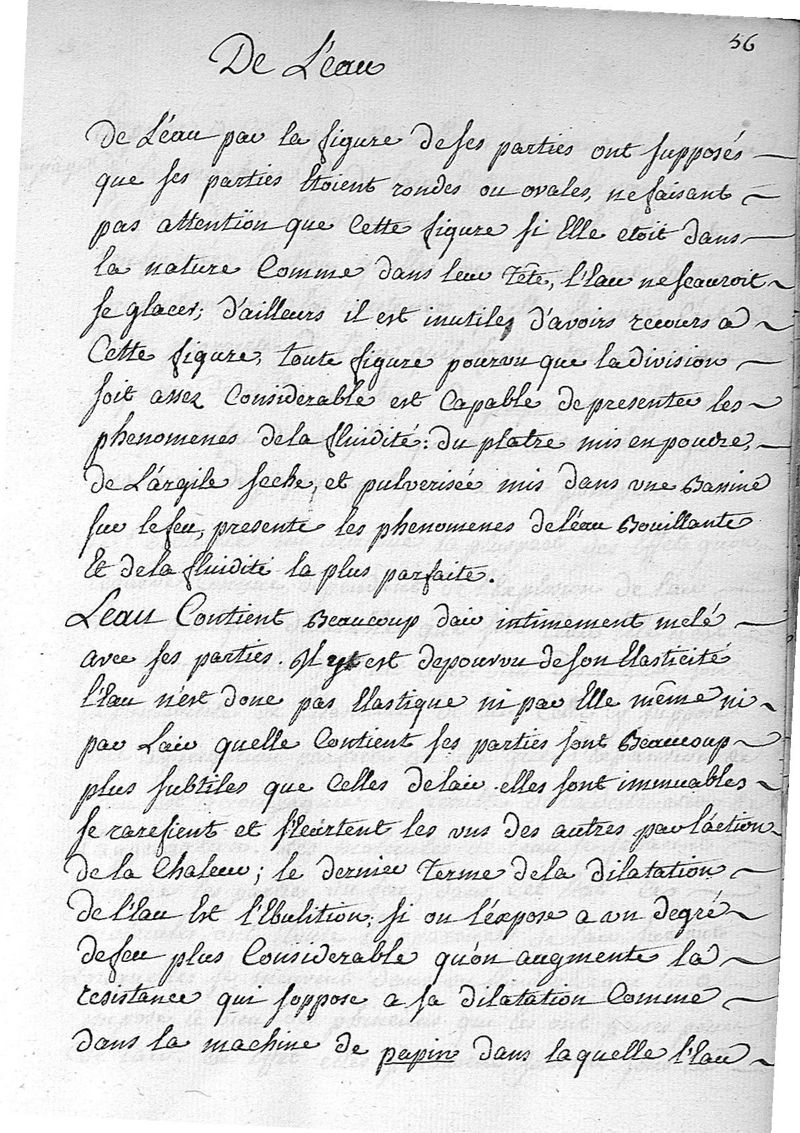 56
De L'eau
De L'éau par la figure de ses parties ont supposés
que ses parties Etoient rondes ou ovales, ne faisant
pas attention que Cette figure si Elle etoit dans
la nature Comme dans leur Tête, l'Eau ne scauroit
se glacer; d'ailleurs il est inutile, d'avoirs recours a
Cette figure, toute figure pourvu que la division
soit assez Considerable est Capable de presenter les
phenomenes de la fluidité: du platre mis en poudre,
de L'argile seche, et pulverisée mis dans une Bassine
sur le feu, presente les phenomenes de l'éau Bouillante
Et de la fluidité la plus parfaite.
L'eau Contient Beaucoup dair intimement melé
avec ses parties. Il est depourvu de son Elasticité
l'Eau n'est donc pas Elastique ni par Elle même ni
par Lair quelle Contient ses parties sont Beaucoup
plus subtiles que Celles delair elles sont immuables
se rarefient et s'Ecartent les uns des autres par l'action
de la Chaleur; le dernier Terme de la dilatation
de l'Eau Est l'Ebulition; si on l'éxpose a un degré
de feu plus Considerable qu'on augmente la
resistance qui s'oppose a sa dilatation Comme
dans la machine de papin dans laquelle l'Eau